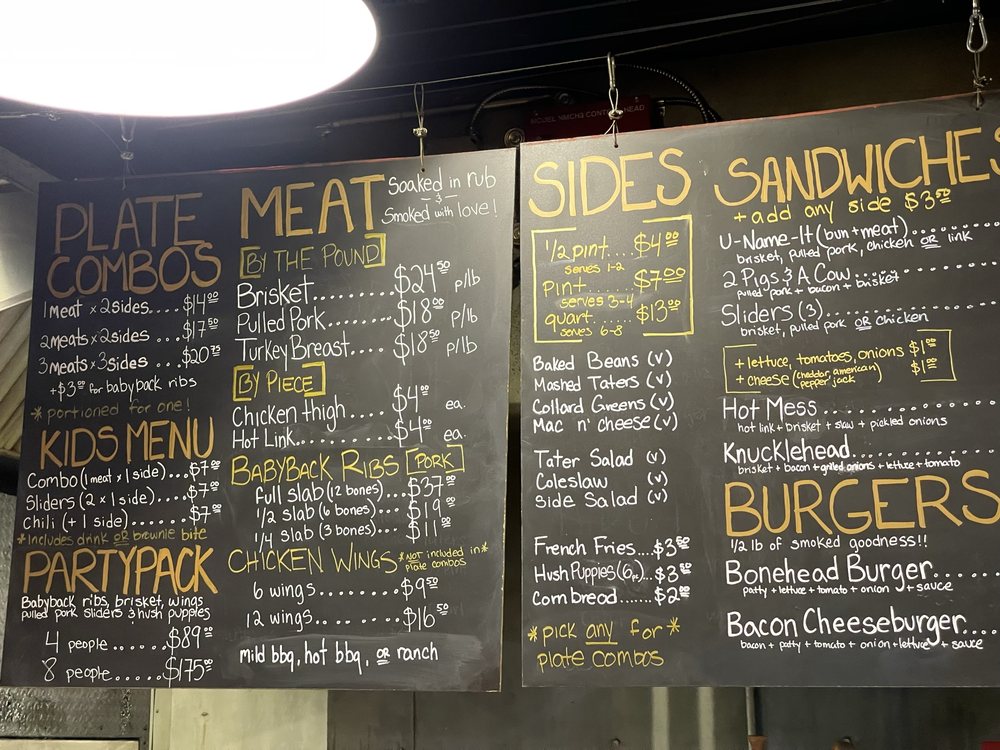 MODEL NMCH3 CONTROL HEAD
PLATE
COMBOS
1 meat x 2 sides....$14.00
2 meats x 2 sides...$17.50
3 meats x 3 sides...$20.75
+$3.00 for babyback ribs
*portioned for one!
KIDS MENU
Combo (1 meat x 1 side)...$7.00
Sliders (2 x 1 side).....$7.00
Chili (+ 1 side)......$7.00
*Includes drink OR brownie bite
PARTYPACK
Babyback ribs, brisket, wings
pulled pork sliders & hush puppies
4 people......$89.00
8 people.....$175.00
MEAT
Soaked in rub
- & -
Smoked with love!
[BY THE POUND]
Brisket........$24.50 p/lb
Pulled Pork.....$18.00 p/lb
Turkey Breast....$18.50 p/lb
[BY PIECE]
Chicken thigh....$4.00 ea.
Hot Link.........$4.00 ea.
BABYBACK RIBS [PORK]
full slab (12 bones)...$37.00
1/2 slab (6 bones)....$19.00
1/4 slab (3 bones)...$11.00
CHICKEN WINGS *NOT included in*
plate combos
6 wings.........$9.50
12 wings........$16.50
Mild bbq, hot bbq, OR ranch
SIDES
1/2 pint....$4.00
serves 1-2
pint......$7.00
serves 3-4
quart....$13.00
serves 6-8
Baked Beans (v)
Mashed Taters (v)
Collard Greens (v)
Mac n' cheese (v)
Tater Salad (v)
Coleslaw (v)
Side Salad (v)
French Fries...$3.50
Hush Puppies (6pc)..$3.00
Cornbread......$2.00
*pick any for*
plate combos
SANDWICHES
+add any side $3.50
U-Name-It (bun+meat)............
brisket, pulled pork, chicken OR link
2 Pigs & A Cow..............
pulled pork + bacon + brisket
Sliders (3)..................
brisket, pulled pork OR chicken
+ lettuce, tomatoes, onions $1.00
+ cheese (cheddar, american, pepper jack) $1.00
Hot Mess...................
hot link + brisket + slaw + pickled onions
Knucklehead................
brisket + bacon + grilled onions + lettuce + tomato
BURGERS
1/2 lb of smoked goodness!!
Bonehead Burger.....
patty + lettuce + tomato + onion + sauce
Bacon Cheeseburger....
bacon + patty + tomato + onion + lettuce + sauce